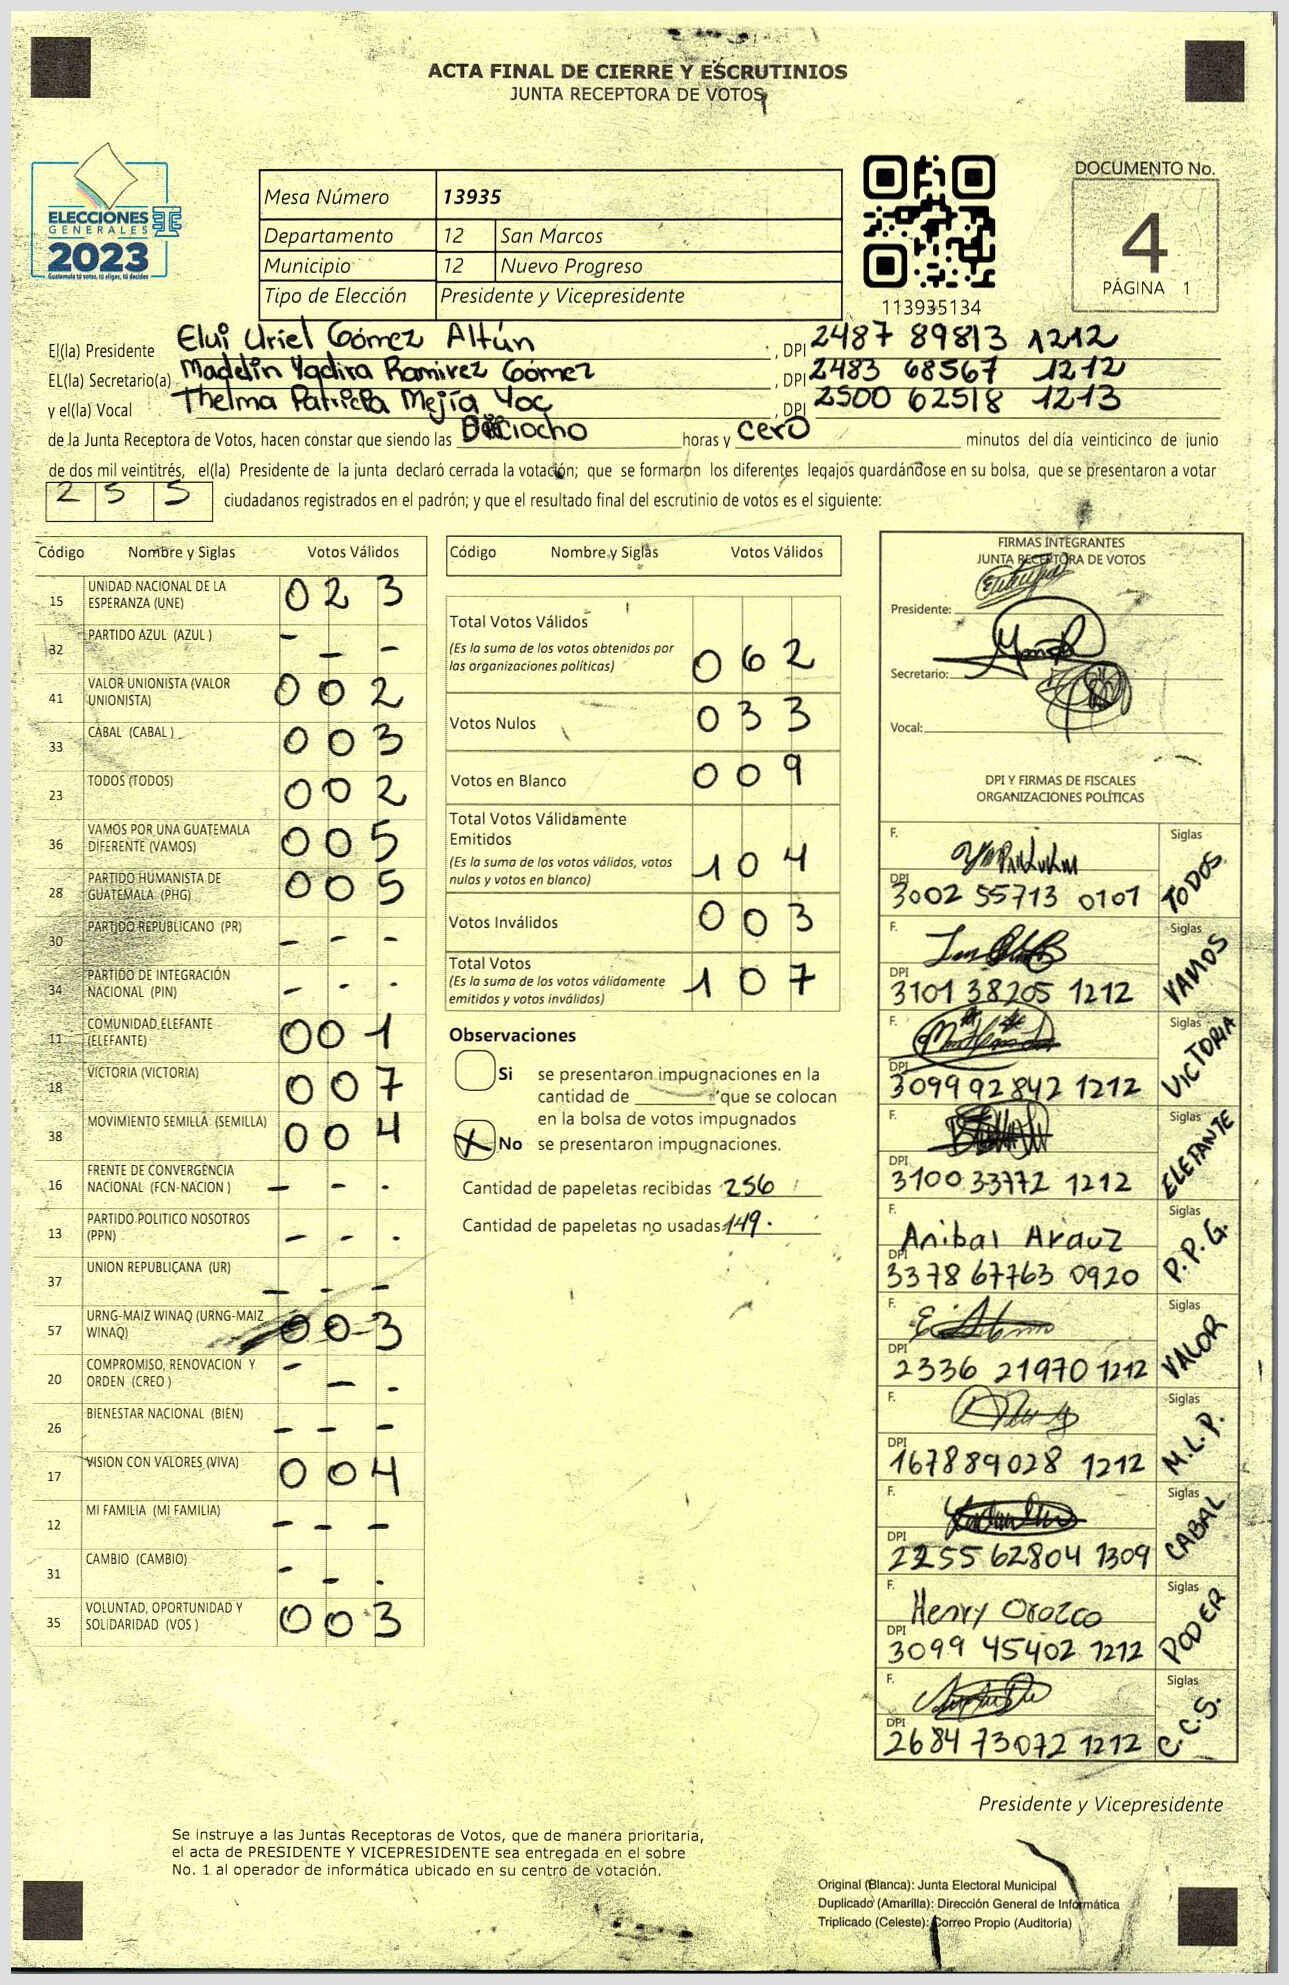 ACTA FINAL DE CIERRE Y ESCRUTINIOS
JUNTA RECEPTORA DE VOTOS
ELECCIONES
GENERALES
2023
Guatemala tú votas, tú eliges, tú decides
Mesa Número 13935
Departamento 12 San Marcos
Municipio 12 Nuevo Progreso
Tipo de Elección Presidente y Vicepresidente
113935134
DOCUMENTO No.
4
PÁGINA 1
El(la) Presidente Elui Uriel Gómez Altún, DPI 2487 89813 1212
EL(la) Secretario(a) Madelin Yadira Ramirez Gómez, DPI 2483 68567 1212
y el(la) Vocal Thelma Patricia Mejía Yoc, DPI 2500 62518 1213
de la Junta Receptora de Votos, hacen constar que siendo las Dieciocho horas y cero minutos del día veinticinco de junio
de dos mil veintitrés, el(la) Presidente de la junta declaró cerrada la votación; que se formaron los diferentes legajos guardándose en su bolsa, que se presentaron a votar
255 ciudadanos registrados en el padrón; y que el resultado final del escrutinio de votos es el siguiente:
Código Nombre y Siglas Votos Válidos
15 UNIDAD NACIONAL DE LA ESPERANZA (UNE) 0 2 3
32 PARTIDO AZUL (AZUL ) - - -
41 VALOR UNIONISTA (VALOR UNIONISTA) 0 0 2
33 CABAL (CABAL ) 0 0 3
23 TODOS (TODOS) 0 0 2
36 VAMOS POR UNA GUATEMALA DIFERENTE (VAMOS) 0 0 5
28 PARTIDO HUMANISTA DE GUATEMALA (PHG) 0 0 5
30 PARTIDO REPUBLICANO (PR) - - -
34 PARTIDO DE INTEGRACIÓN NACIONAL (PIN) - - -
11 COMUNIDAD ELEFANTE (ELEFANTE) 0 0 1
18 VICTORIA (VICTORIA) 0 0 7
38 MOVIMIENTO SEMILLA (SEMILLA) 0 0 4
16 FRENTE DE CONVERGENCIA NACIONAL (FCN-NACION ) - - -
13 PARTIDO POLITICO NOSOTROS (PPN) - - -
37 UNION REPUBLICANA (UR) - - -
57 URNG-MAIZ WINAQ (URNG-MAIZ WINAQ) 0 0 3
20 COMPROMISO, RENOVACION Y ORDEN (CREO ) - - -
26 BIENESTAR NACIONAL (BIEN) - - -
17 VISION CON VALORES (VIVA) 0 0 4
12 MI FAMILIA (MI FAMILIA) - - -
31 CAMBIO (CAMBIO) - - -
35 VOLUNTAD, OPORTUNIDAD Y SOLIDARIDAD (VOS ) 0 0 3
Código Nombre y Siglas Votos Válidos
Total Votos Válidos
(Es la suma de los votos obtenidos por
las organizaciones políticas) 0 6 2
Votos Nulos 0 3 3
Votos en Blanco 0 0 9
Total Votos Válidamente
Emitidos
(Es la suma de los votos válidos, votos
nulos y votos en blanco) 1 0 4
Votos Inválidos 0 0 3
Total Votos
(Es la suma de los votos válidamente
emitidos y votos inválidos) 1 0 7
Observaciones
Si se presentaron impugnaciones en la
cantidad de ________ que se colocan
en la bolsa de votos impugnados
X No se presentaron impugnaciones.
Cantidad de papeletas recibidas 256
Cantidad de papeletas no usadas 149.
FIRMAS INTEGRANTES
JUNTA RECEPTORA DE VOTOS
Presidente:
Secretario:
Vocal:
DPI Y FIRMAS DE FISCALES
ORGANIZACIONES POLÍTICAS
F. Siglas TODOS
DPI 3002 55713 0101
F. Siglas VAMOS
DPI 3101 38205 1212
F. Siglas VICTORIA
DPI 3099 92842 1212
F. Siglas ELEFANTE
DPI 3100 33772 1212
F. Anibal Arauz Siglas P.P.G.
DPI 3378 67763 0920
F. Siglas VALOR
DPI 2336 21970 1212
F. Siglas M.L.P.
DPI 1678 89028 1212
F. Siglas CABAL
DPI 2255 62804 1309
F. Henry Orozco Siglas PODER
DPI 3099 45402 1212
F. Siglas C.C.S.
DPI 2684 73072 1212
Presidente y Vicepresidente
Se instruye a las Juntas Receptoras de Votos, que de manera prioritaria,
el acta de PRESIDENTE Y VICEPRESIDENTE sea entregada en el sobre
No. 1 al operador de informática ubicado en su centro de votación.
Original (Blanca): Junta Electoral Municipal
Duplicado (Amarilla): Dirección General de Informática
Triplicado (Celeste): Correo Propio (Auditoria)